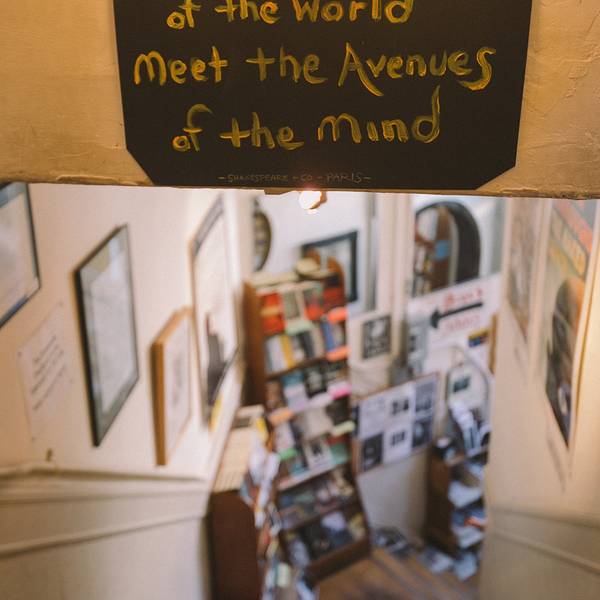 of the World
Meet the Avenues
of the Mind
- SHAKESPEARE + CO - PARIS -